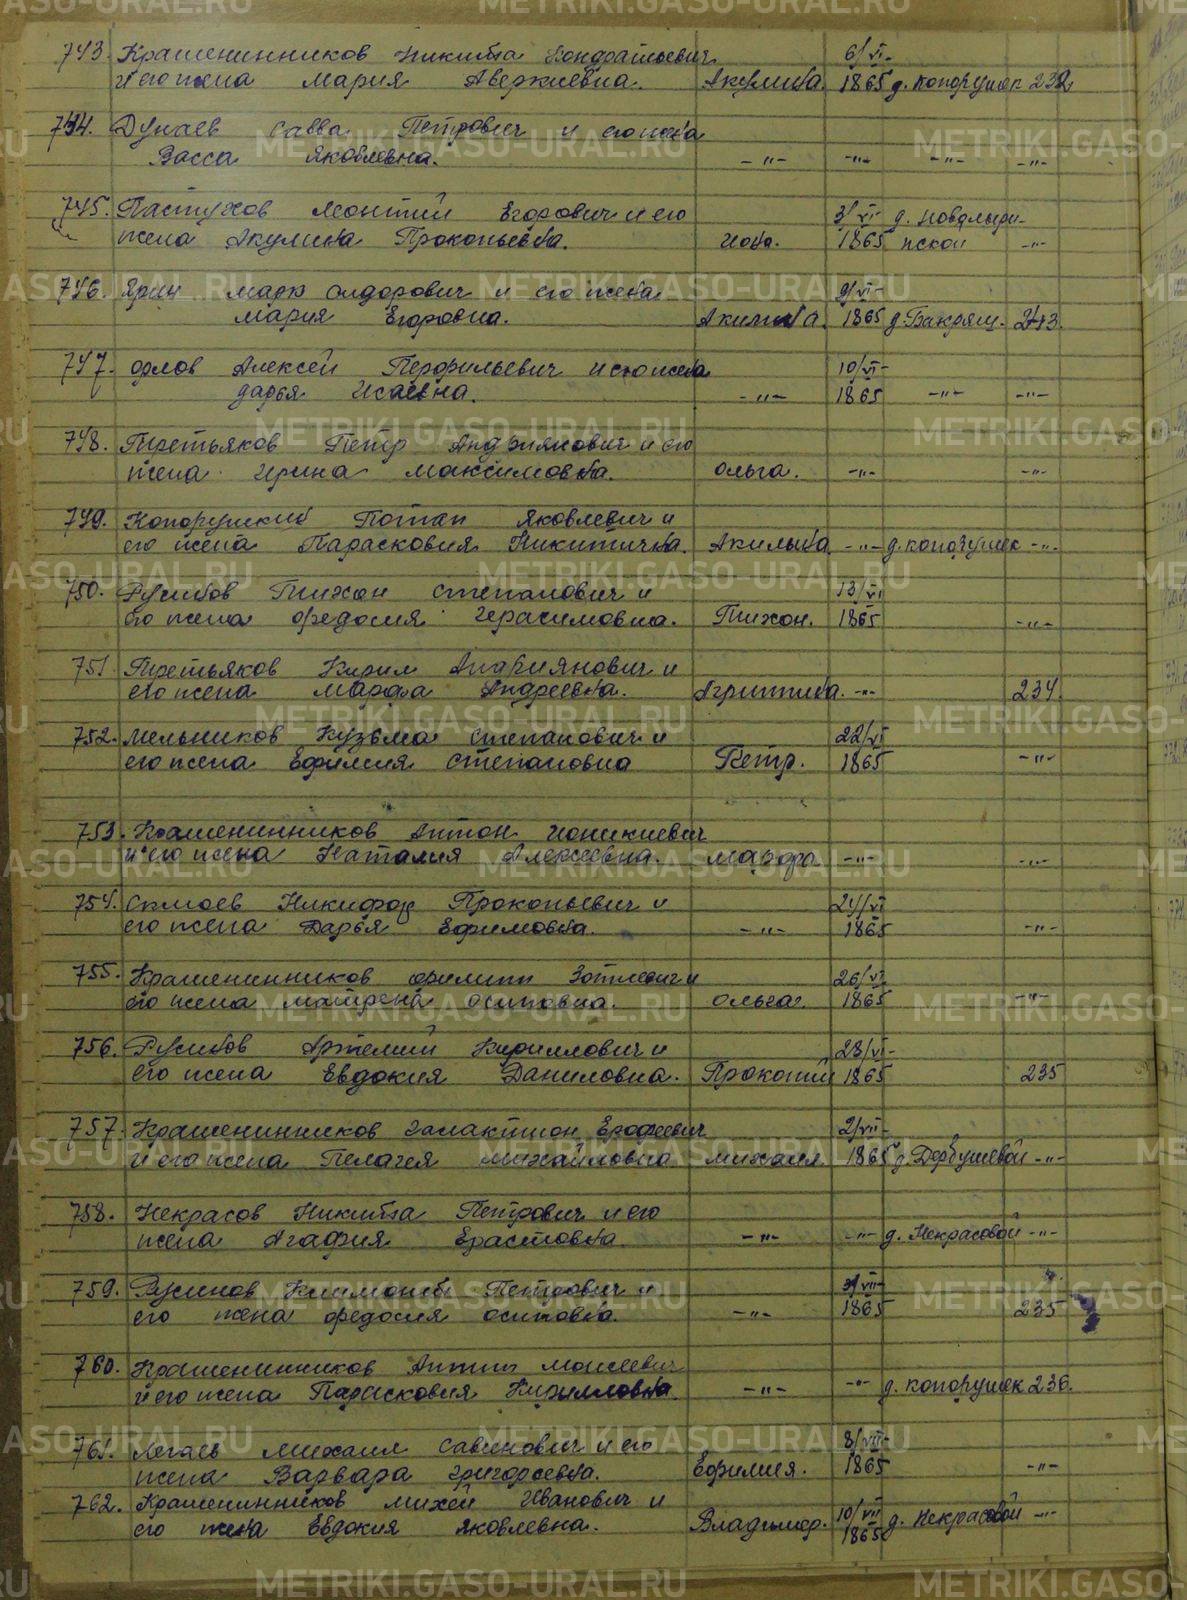 743. Крашенинников Никита Кондратьевич 6/VI-
и его жена Мария Аверкиевна. Акулина. 1865 д. Копорушек 232
744. Дунаев Савва Петрович и его жена
Васса Яковлевна. -"- -"- -"- -"-
745. Пастухов Леонтий Егорович и его 3/VI д. Новалыгин-
жена Акулина Прокопьевна. Иона. 1865 ской -"-
746. Ярин Марк Сидорович и его жена 9/VI-
Мария Егоровна. Акилина. 1865 д. Бакряш. 243.
747. Орлов Алексей Перфильевич и его жена 10/VI-
Дарья Исаевна. -"- 1865 -"- -"-
748. Третьяков Петр Андриянович и его
жена Ирина Максимовна. Ольга. -"- -"-
749. Копорушкин Потап Яковлевич и
его жена Парасковия Никитична. Акилина -"- д. Копорушек -"-
750. Русинов Тихон Степанович и 13/VI
его жена Федосия Герасимовна. Тихон. 1865 -"-
751 Третьяков Кирил Андриянович и
его жена Марфа Андреевна. Агрипина. -"- 234.
752. Мельников Кузьма Степанович и 22/VI
его жена Ефимия Степановна Петр. 1865 -"-
753. Крашенинников Антон Ионикиевич
и его жена Наталия Алексеевна. Марфа -"- -"-
754. Никифор Прокопьевич и 24/VI
его жена Дарья Ефимовна. -"- 1865 -"-
755. Крашенинников Филипп Зотиевич и 26/VI
его жена Матрена Осиповна. Ольга. 1865 -"-
756. Русинов Артемий Кириллович и 28/VI-
его жена Евдокия Даниловна. Прокопий 1865 235
757. Крашенинников Галактион Ерофеевич 2/VII-
и его жена Пелагея Михайловна Михаил. 1865 д. Дербушевой -"-
758. Некрасов Никита Петрович и его
жена Агафия Ерастовна -"- -"- д. Некрасовой -"-
759. Русинов Климонт Петрович и 3/VII-
его жена Федосия Осиповна. -"- 1865 235
760. Крашенинников Антип Моисеевич
и его жена Парасковия Кирилловна. -"- -"- д. Копорушек 236.
761. Легаев Михаил Савинович и его 8/VII-
жена Варвара Григорьевна. Ефимия. 1865 -"-
762. Крашенинников Михей Иванович и 10/VII
его жена Евдокия Яковлевна. Владимер. 1865 д. Некрасовой -"-
METRIKI.GASO-URAL.RU